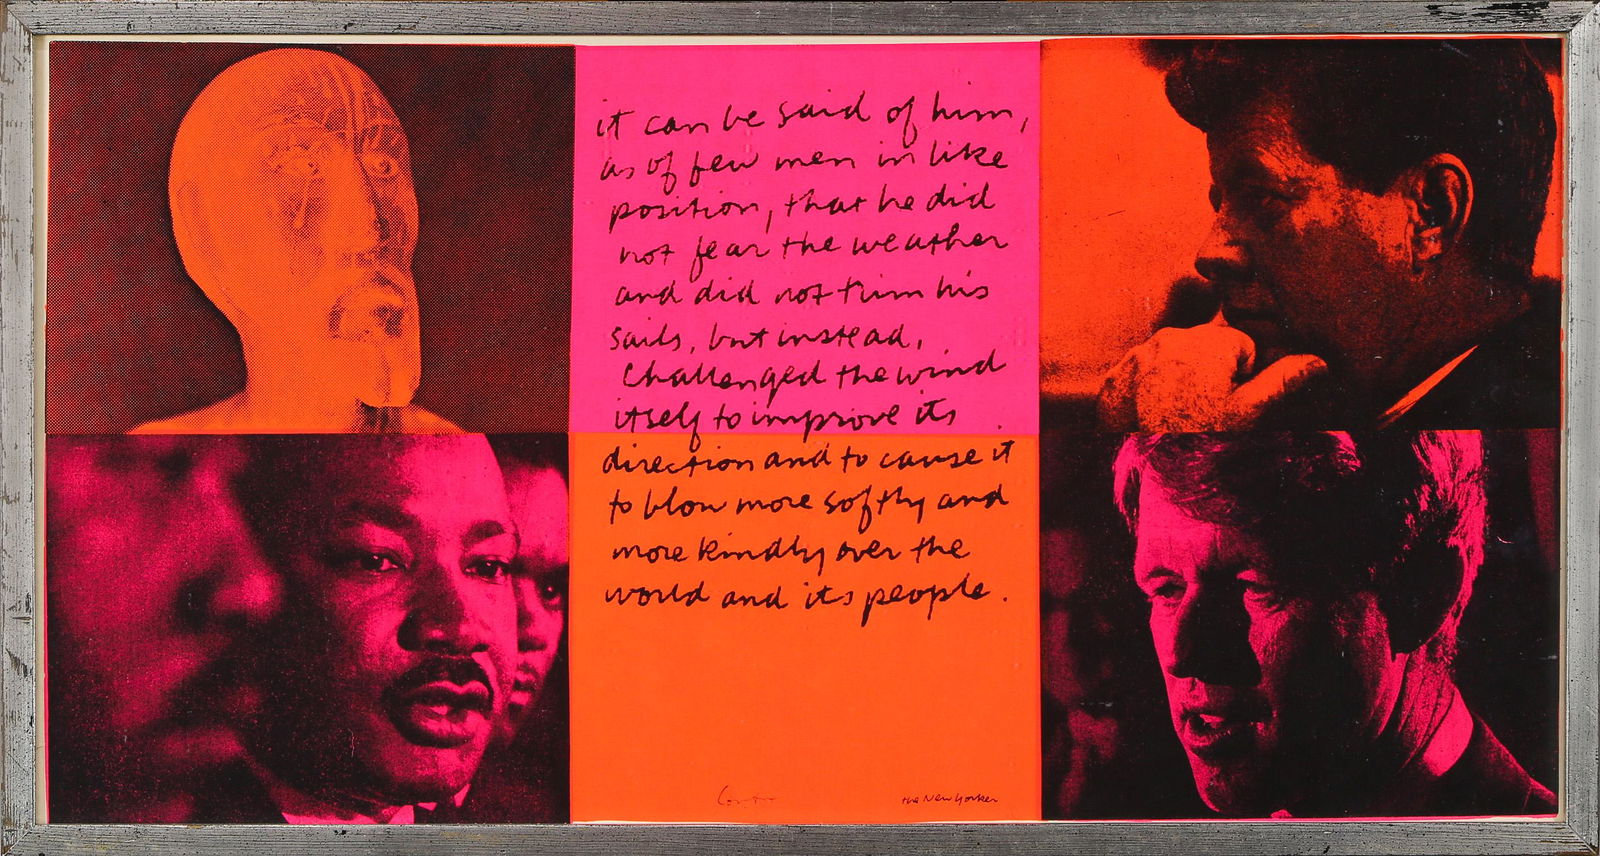 it can be said of him,
as of few men in like
position, that he did
not fear the weather
and did not trim his
sails, but instead,
challenged the wind
itself to improve its
direction and to cause it
to blow more softly and
more kindly over the
world and its people.
the New Yorker